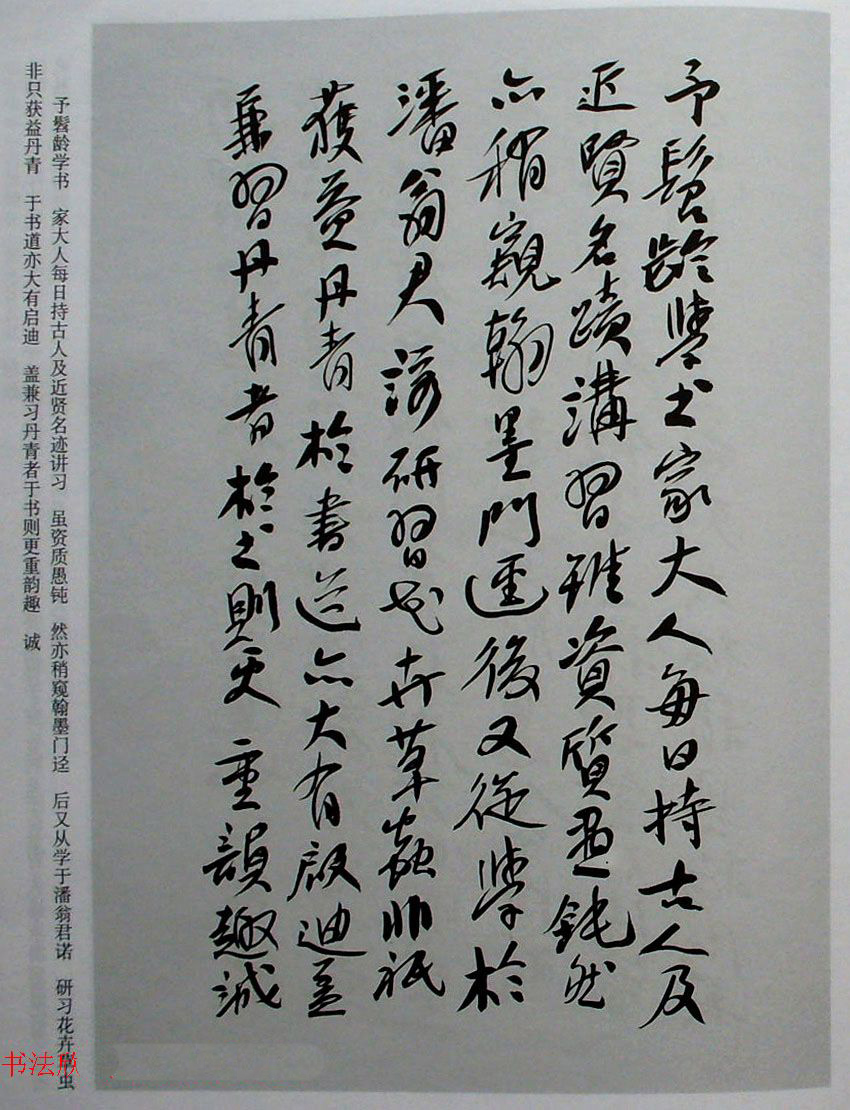 予髫齡學书家大人每日持古人及
近賢名蹟講習雖資質愚鈍然
亦稍窺翰墨門逕後又從學於
潘翁君诺研習花卉草蟲非祇
獲益丹青於書道亦大有啟迪蓋
兼習丹青者於书則更重韻趣誠
予髫龄学书 家大人每日持古人及近贤名迹讲习 虽资质愚钝 然亦稍窥翰墨门迳 后又从学于潘翁君诺 研习花卉草虫
非只获益丹青 于书道亦大有启迪 盖兼习丹青者于书则更重韵趣 诚
书法